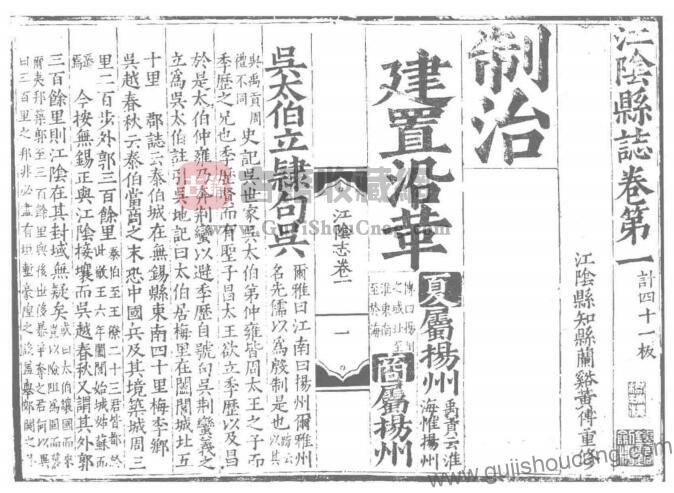 江陰縣誌卷第一 計四十一板
江陰縣知縣蘭谿黃傅重修
制治
建置沿革 夏屬揚州 禹貢云淮海惟揚州 商屬揚州
江陰志卷一
一
吳太伯立隸句吳 爾雅曰江南曰揚州爾雅州名先儒以為殷制是也
與禹貢周禮不同 史記吳世家吳太伯弟仲雍皆周太王之子而
季歷之兄也季歷賢而有聖子昌太王欲立季歷以及昌
於是太伯仲雍乃奔荊蠻以避季歷自號句吳荊蠻義之
立為吳太伯註引吳地記曰太伯居梅里在闔閭城北五
十里 郡誌云泰伯城在無錫縣東南四十里梅李鄉
吳越春秋云泰伯當商之末恐中國兵及其境築城周三
里二百步外郭三百餘里
今按無錫正與江陰接壤而吳越春秋又謂其外郭
三百餘里則江陰在其封域無疑矣
古籍收藏網
www.GujiShouCang.com
www.gujishoucang.com